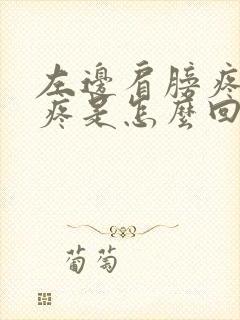 左邊肩膀疼
疼是怎麼回
葡萄